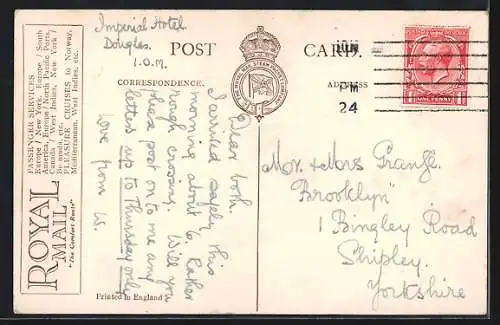 Imperial Hotel
Douglas.
I.O.M.
POST CARD.
CORRESPONDENCE.
ADDRESS
THE ROYAL MAIL STEAM PACKET COMPANY
JUN
PM
24
ONE PENNY
Dear both.
I arrived safely this
morning about 6. Rather
rough crossing. Will you
please post on to me any
letters up to Thursday only
Love from W.
Mr. & Mrs Grange.
"Brooklyn"
1 Bingley Road
Shipley.
Yorkshire
ROYAL
MAIL
"The Comfort Route"
PASSENGER SERVICES
Europe / New York, Europe / South
America, Europe / North Pacific Ports,
Canada / West Indies, New York /
Bermuda, etc.
PLEASURE CRUISES to Norway,
Mediterranean, West Indies, etc.
Printed in England